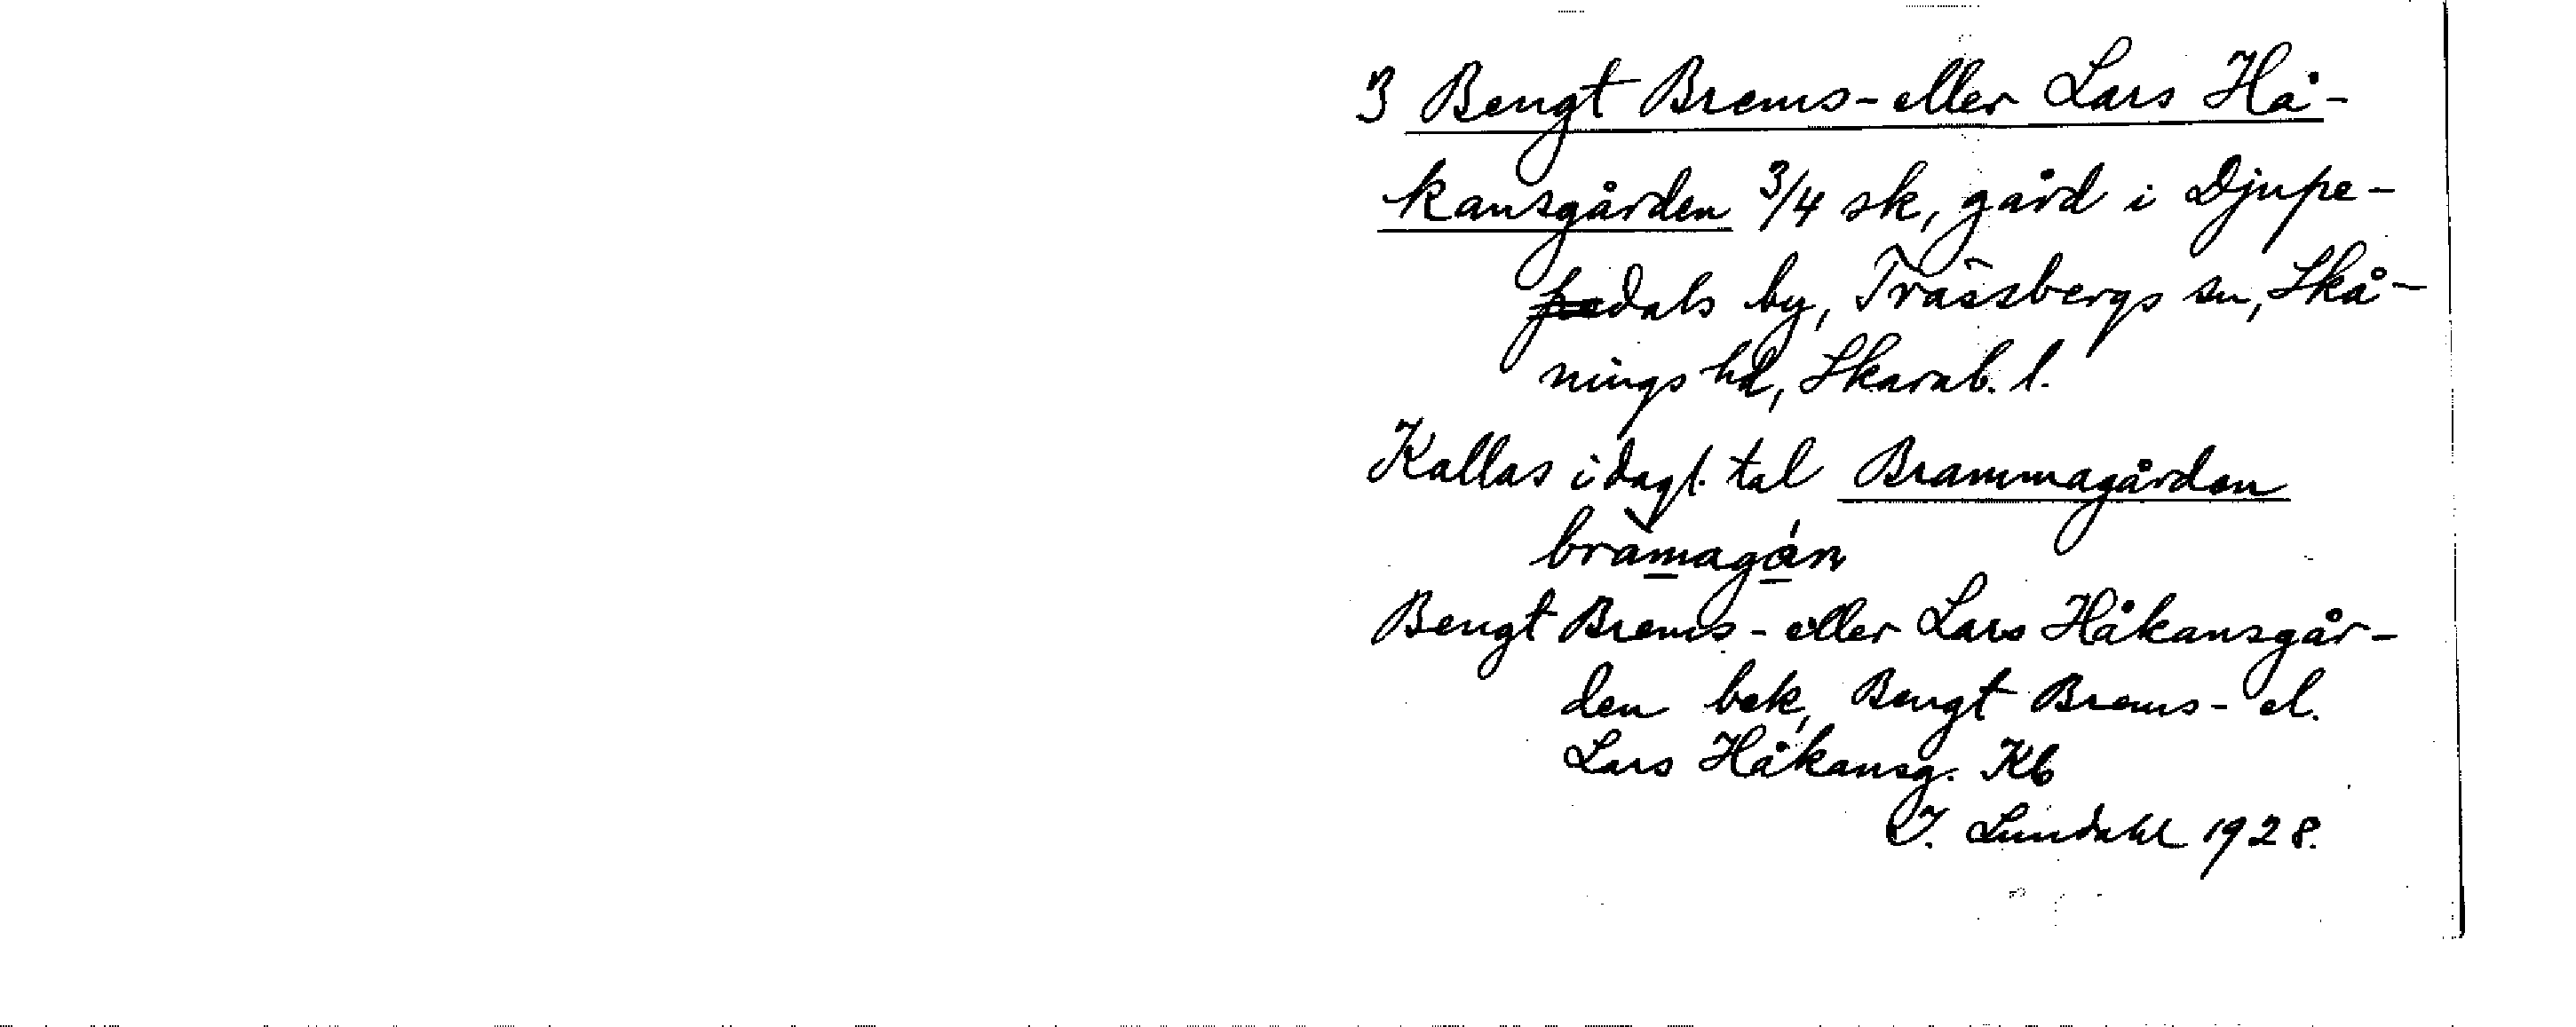 3 Bengt Brems- eller Lars Hå-
kansgården 3/4 sk, gård i Djupe-
dals by, Trässbergs sn, Skå-
nings hd, Skarab. l.
Kallas i dagl. tal Brammagården
bramagán
Bengt Brems- eller Lars Håkansgår-
den bek, Bengt Brems- el.
Lars Håkansg. Kb
I. Lundahl 1928.